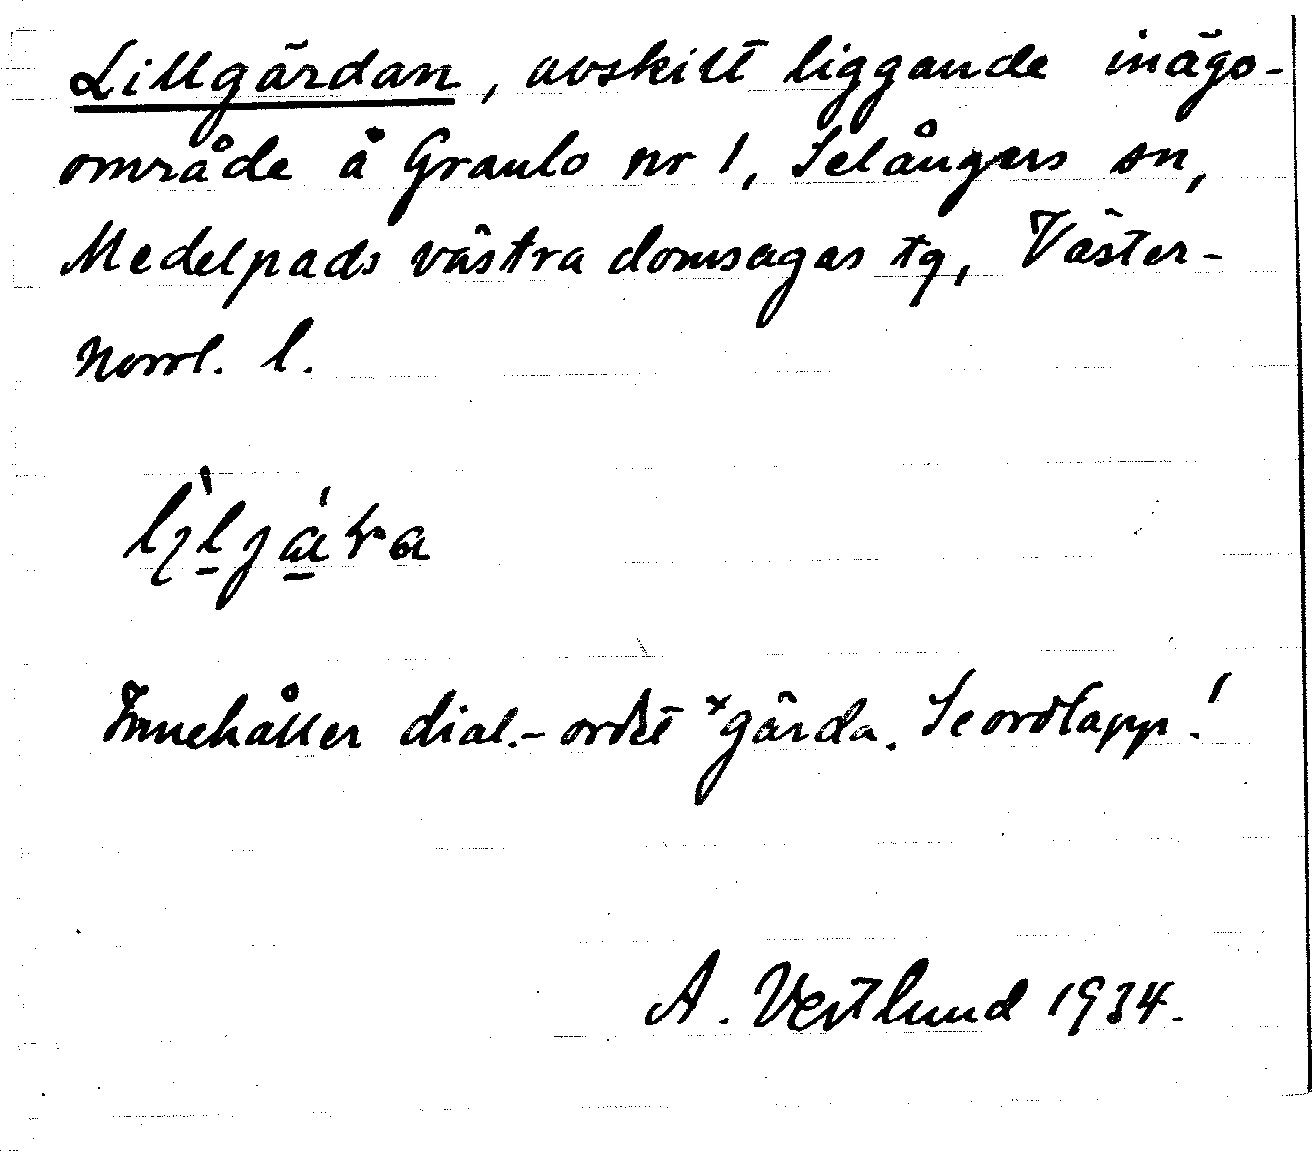 Lillgärdan, avskilt liggande inägo-
område å Granlo nr 1, Selångers sn,
Medelpads västra domsagas tg, Väster-
norrl. l.
Innehåller dial.-ordet *gärda. Se ordlapp!
A. Vestlund 1934.